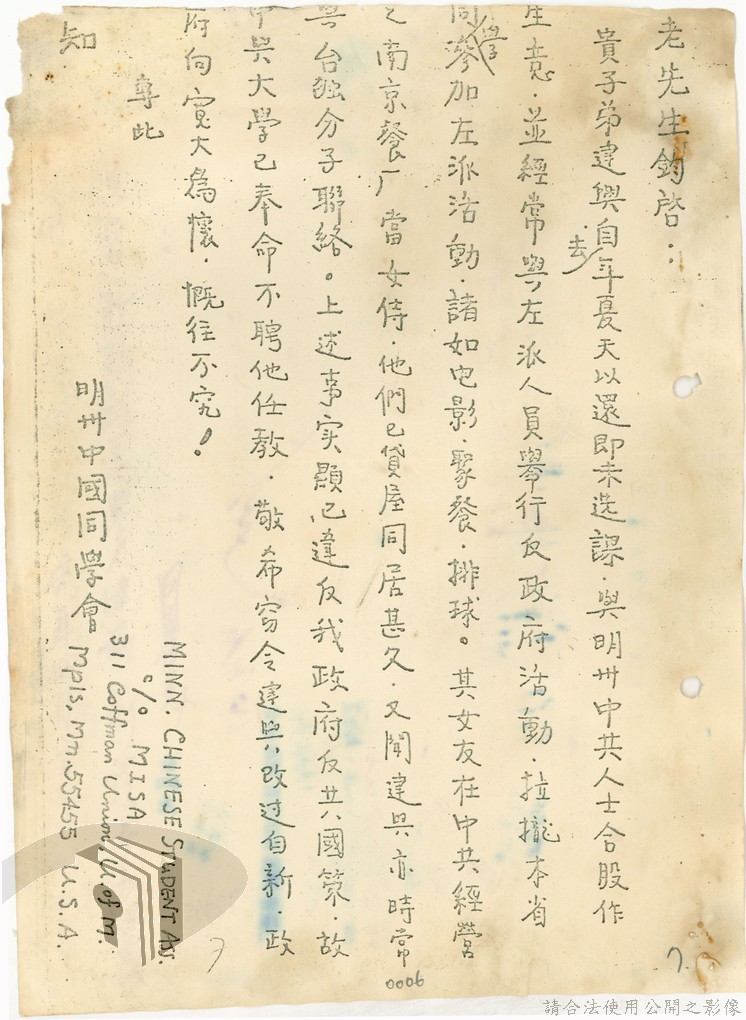 老先生鈞啓：
貴子弟建興自去年夏天以還即未选課．與明州中共人士合股作
生意．並經常與左派人員舉行反政府活動．拉攏本省
同學參加左派活動．諸如电影．聚餐．排球。其女友在中共經營
之南京餐厂當女侍．他們已貸屋同居甚久．又聞建興亦時常
與台独分子聯絡。上述事实顯已違反我政府反共國策．故
中興大學已奉命不聘他任教．敬希窃令建興改过自新．政
府向寬大為懷．慨往不究！
專此
知
明州中國同學會
MINN. CHINESE STUDENT As.
c/o MISA
311 Coffman Union, U of M.
Mpls, Mn. 55455 U.S.A.
7.
0006
請合法使用公開之影像